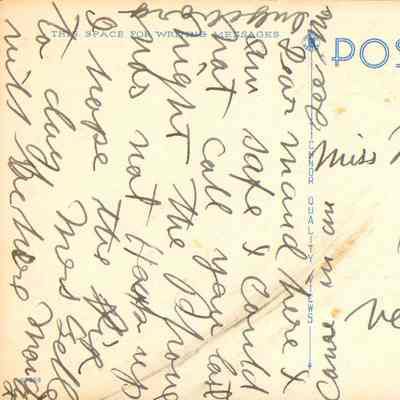 THIS SPACE FOR WRITING MESSAGES
POS
TICHNOR QUALITY VIEWS
Dear maud here I
am safe & could
not call you last
night the Phone
was not Hook up
I hope the fix
to day Mrs Sell
will be here
Miss